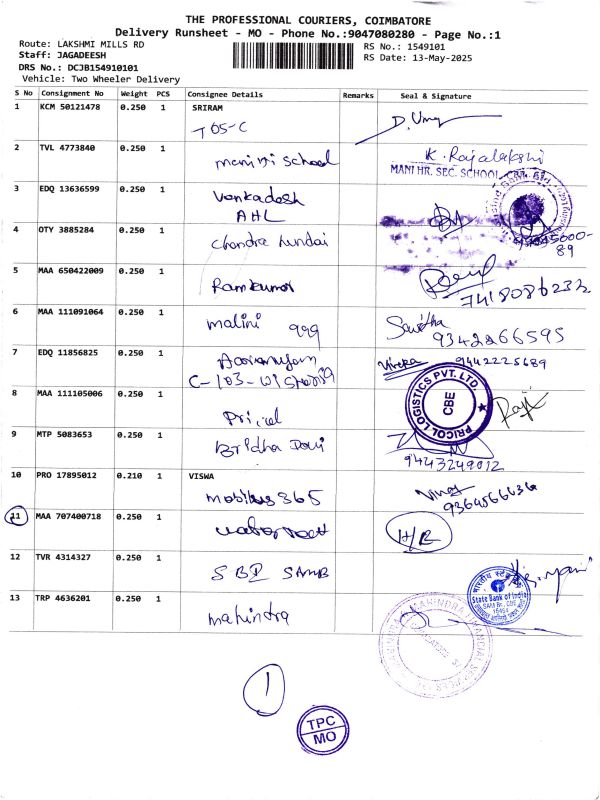 THE PROFESSIONAL COURIERS, COIMBATORE
Delivery Runsheet - MO - Phone No.:9047080280 - Page No.:1
Route: LAKSHMI MILLS RD
RS No.: 1549101
Staff: JAGADEESH
RS Date: 13-May-2025
DRS No.: DCJB154910101
Vehicle: Two Wheeler Delivery
S No Consignment No Weight PCS Consignee Details Remarks Seal & Signature
1 KCM 50121478 0.250 1 SRIRAM
705-C
2 TVL 4773840 0.250 1 mani hr school K. Rajalakshi
MANI HR. SEC. SCHOOL
3 EDQ 13636599 0.250 1 Venkadesh
AHL
4 OTY 3885284 0.250 1 Chandra hundai
89
5 MAA 650422009 0.250 1 Ramkumar
7418086232
6 MAA 111091064 0.250 1 malini 999 Savitha
9342866595
7 EDQ 11856825 0.250 1 9442225689
C-103-wisteria
8 MAA 111105006 0.250 1 Pricol
PRICOL LOGISTICS PVT. LTD.
CBE
Raji
9 MTP 5083653 0.250 1 Bridha Devi
9443249012
10 PRO 17895012 0.210 1 VISWA
mobikes 365
11 MAA 707400718 0.250 1 H/R
12 TVR 4314327 0.250 1 SBI SAMB
भारतीय स्टेट बैंक
State Bank of India
13 TRP 4636201 0.250 1 mahindra
1
TPC
MO